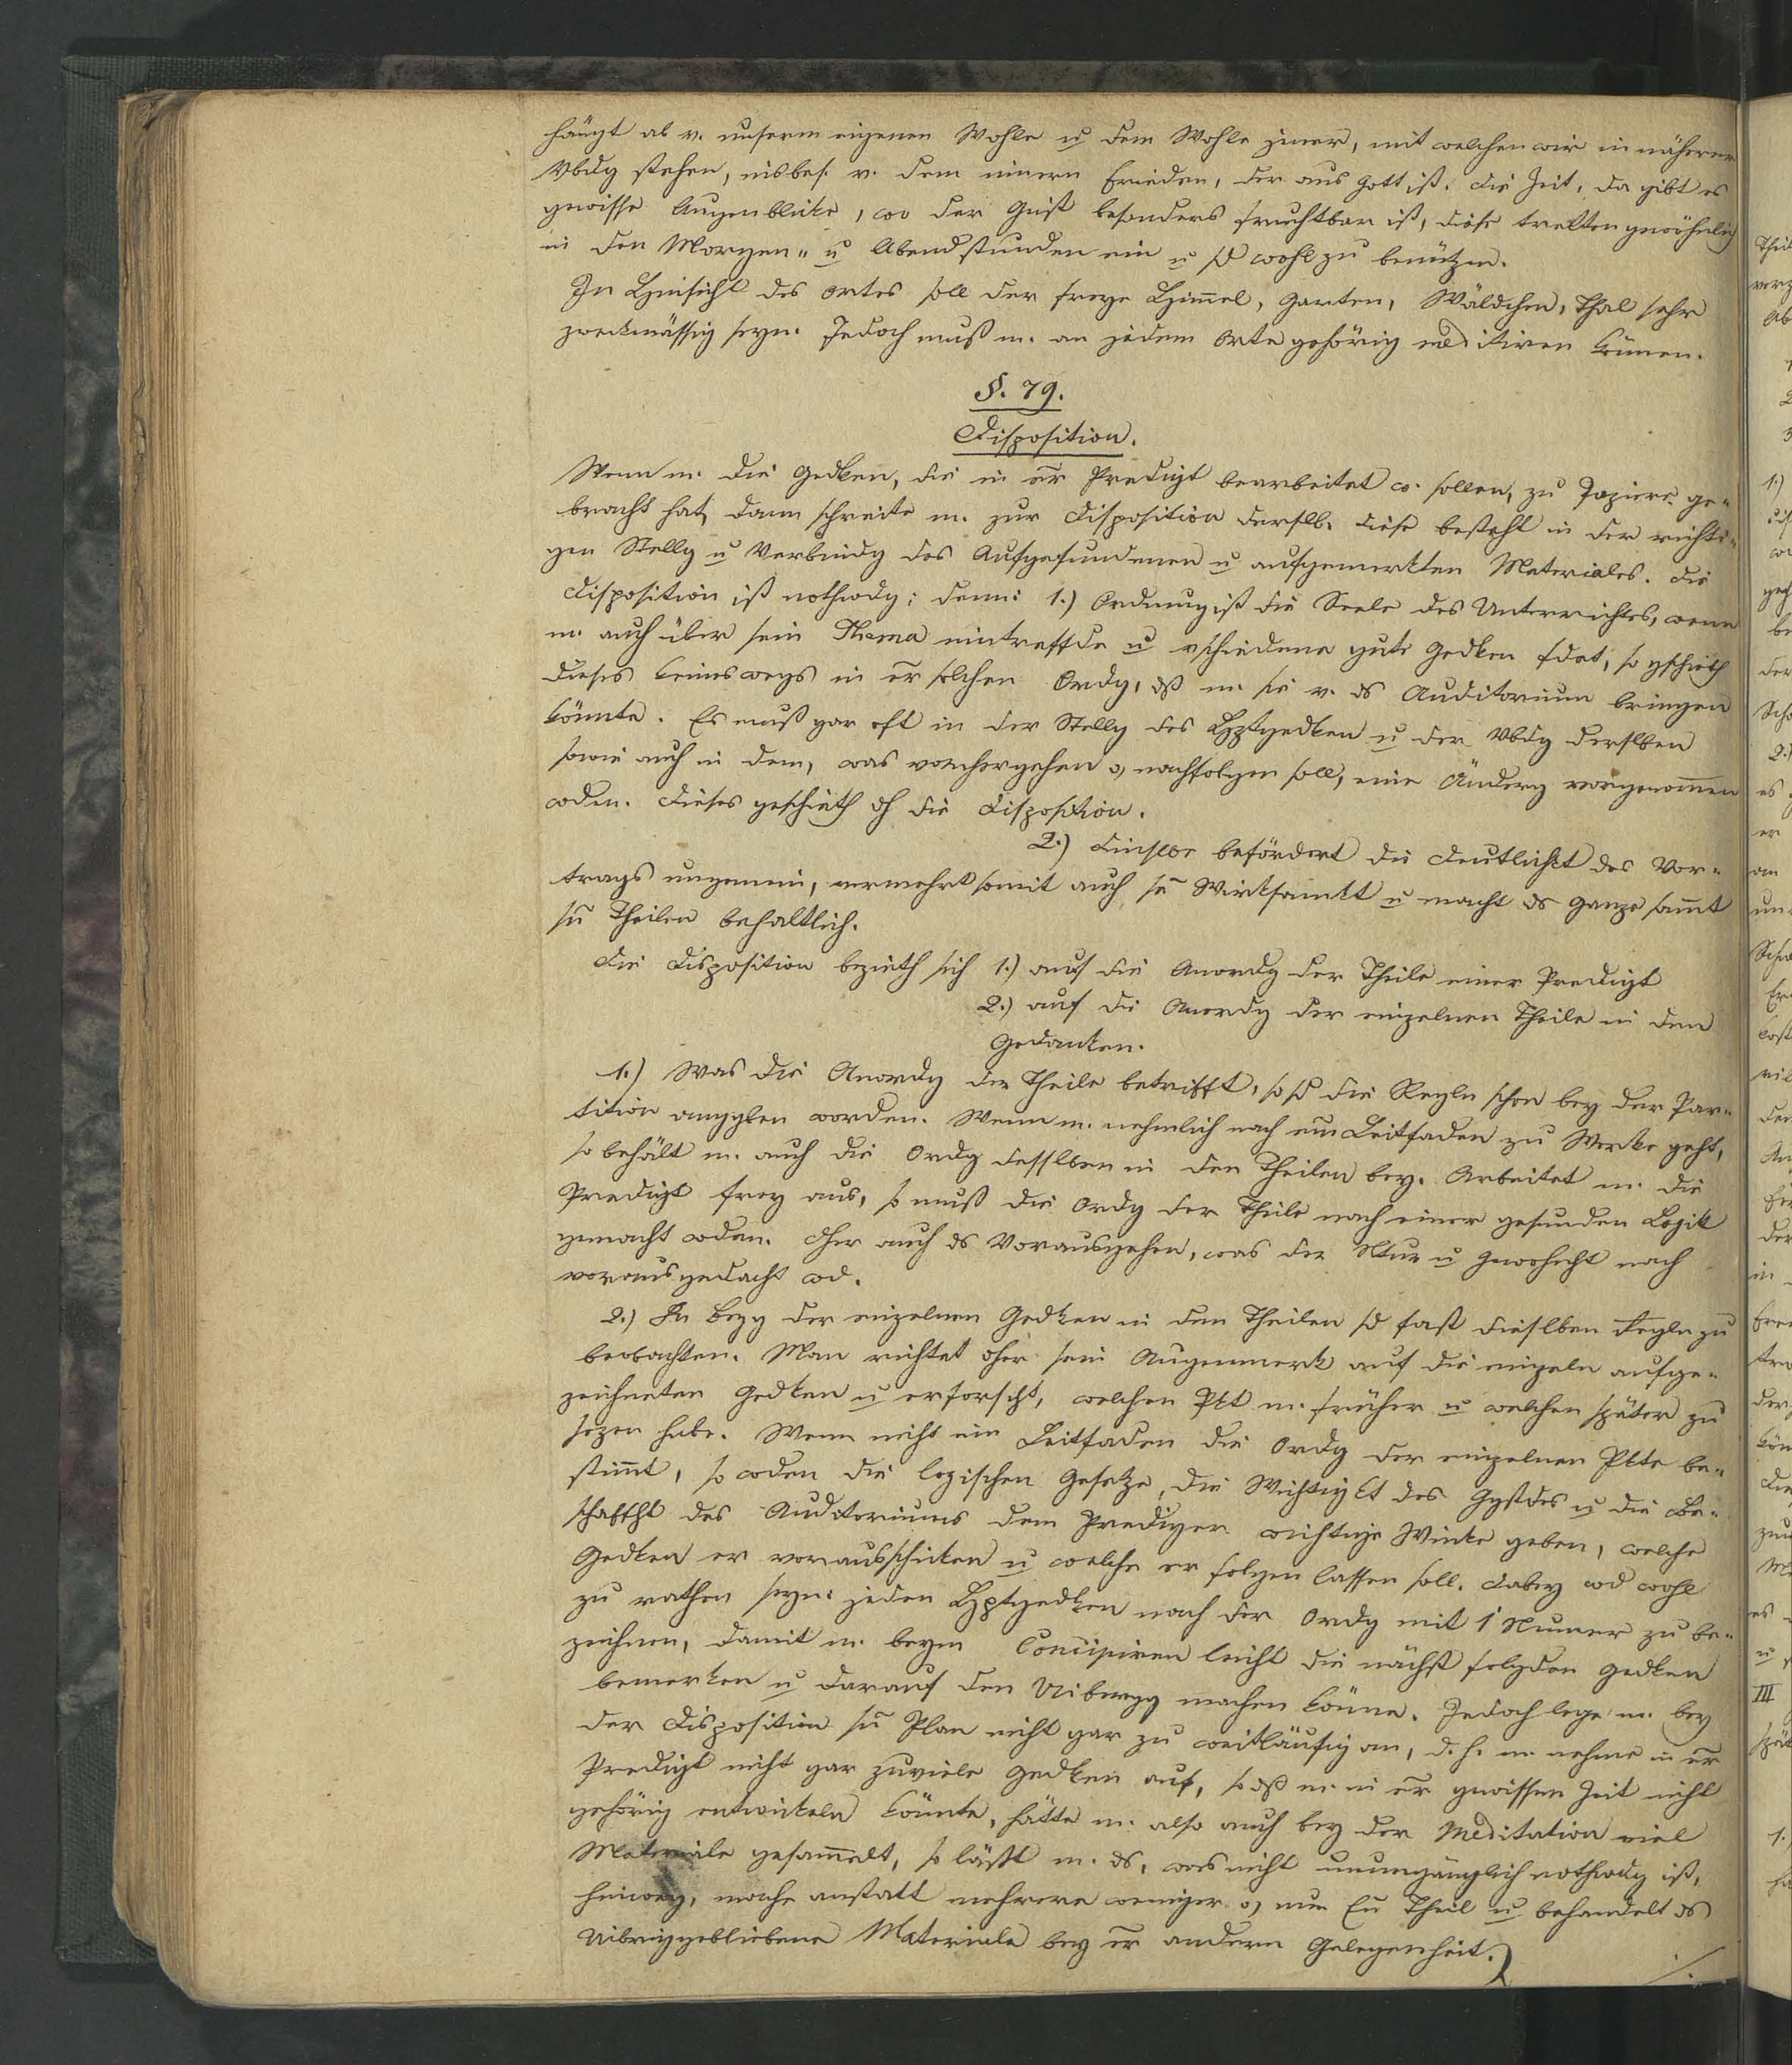 hängt ab v. unserm eigenen Wohle u dem Wohle jener, mit welchen wir in näherer
Vbdg stehen, insbes. v. dem innern Frieden, der aus Gott ist. Die Zeit, da gibt es
gewisse Augenblicke, wo der Geist besonders fruchtbar ist, diese tretten gewöhnlich
in den Morgen- u Abendstunden ein u sd wohl zu benützen.
In Hinsicht des Ortes soll der freye Himmel, Garten, Wäldchen, Thal sehr
zweckmässig seyn. Jedoch muß m. an jedem Orte gehörig meditiren können.
§. 79.
Disposition.
Wenn m. die Gedken, die in er Predigt bearbeitet w. sollen, zu Papiere ge-
bracht hat, dann schreite m. zur Disposition derslb. Diese besteht in der richti-
gen Stellg u Verbindg des Aufgefundenen u aufgemerkten Materiales. Die
Disposition ist nothwdg; denn: 1.) Ordnung ist die Seele des Unterrichtes, wenn
m. auch über sein Thema eintreffde u vschiedene gute Gedken fdet, so gschieth
dieses keineswegs in er solchen Ordg, dß m. sie v. ds Auditorium bringen
könnte. Es muß gar oft in der Stellg des Hptgedken u der Vbdg derslben
sowie auch in dem, was vorhergehen o, nachfolgen soll, eine Änderg vorgenommen
wden. Dieses geschieth dh die Disposition.
2.) Dieslbe befördert die Deutlichkt des Vor-
trags ungemein, vermehrt somit auch se Wirksamkt u macht ds Ganze sammt
sn Theilen behaltlich.
Die Disposition bezieth sich 1.) auf die Anordg der Theile einer Predigt
2.) auf die Anordg der einzelnen Theile in dem
Gedanken.
1.) Was die Anordg der Theile betrifft, so sd die Regln schon bey der Par-
tition anggben worden. Wenn m. nehmlich nach em Leitfaden zu Werke geht,
so behält m. auch die Ordg desslben in den Theilen bey. Arbeitet m. die
Predigt frey aus, so muß die Ordg der Theile nach einer gesunden Logik
gemacht wden. Eher auch ds Vorausgehen, was der Ntur u Gewohnht nach
vorausgedacht wd.
2.) In Bezg der einzelnen Gedken in den Theilen sd fast dieslben Regln zu
beobachten. Man richtet dher sein Augenmerk auf die einzeln aufge-
zeichneten Gedken u erforscht, welchen Pkt m. früher u welchen später zu
sezen habe. Wenn nicht ein Leitfaden die Ordg der einzelnen Pkte be-
stimmt, so wden die logischen Gesetze, die Wichtigkt des Ggstdes u die Be-
schaffht des Auditoriums dem Prediger wichtige Winke geben, welche
Gedken er vorausschicken u welche er folgen lassen soll. Dabey wd wohl
zu rathen seyn: jeden Hptgedken nach der Ordg mit 1 Numer zu be-
zeichnen, damit m. beym Concipiren leicht die nächst folgden Gedken
bemerken u darauf den Uibergg machen könne. Jedoch lege m. bey
der Disposition sn Plan nicht gar zu weitläufig an, d. h. m. nehme in er
Predigt nicht gar zuviele Gedken auf, so dß m. in er gwissen Zeit nicht
gehörig entwickeln könnte, hätte m. also auch bey der Meditation viel
Materiale gesammelt, so läßt m. ds, was nicht unumgänglich nothwdg ist,
hinweg, mache anstatt mehrere weniger o, nur En Theil u behandelt ds
Uibriggebliebene Materiale bey er andern Gelegenheit.